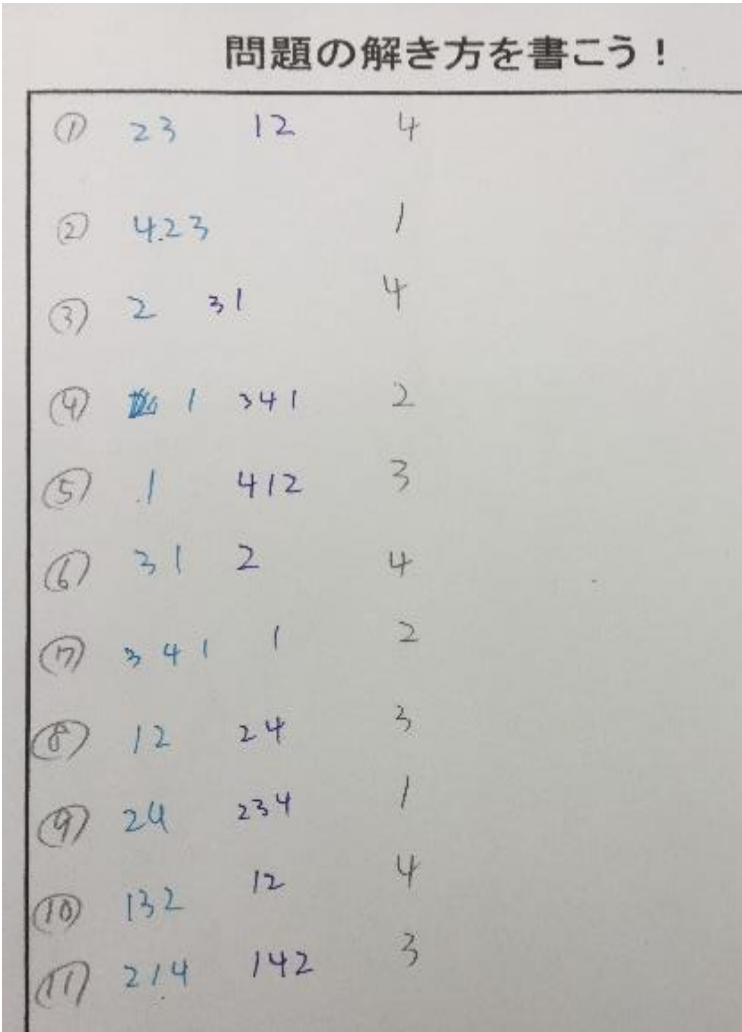 問題の解き方を書こう!
① 23 12 4
② 4.23 1
③ 2 31 4
④ 1 341 2
⑤ .1 412 3
⑥ 31 2 4
⑦ 341 1 2
⑧ 12 24 3
⑨ 24 234 1
⑩ 132 12 4
⑪ 214 142 3